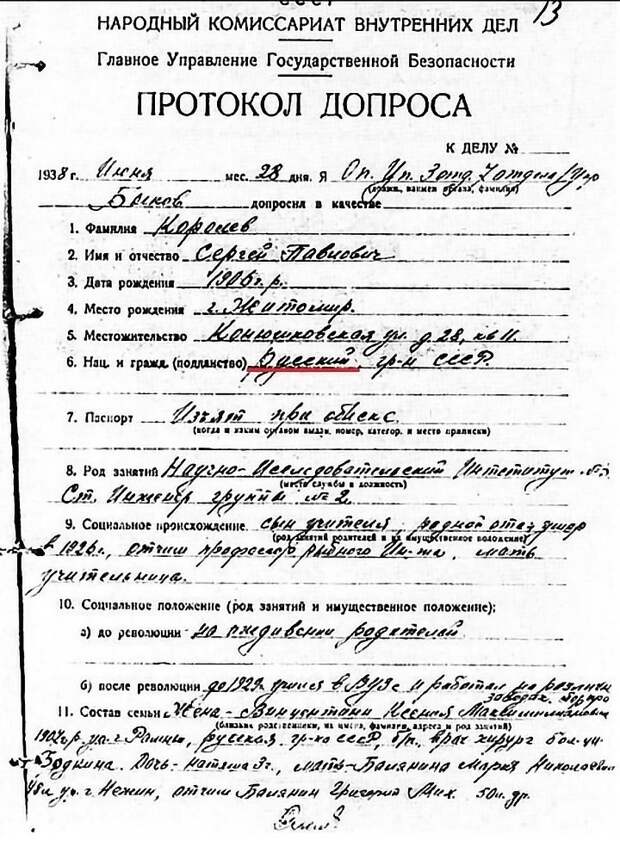 СССР
13
НАРОДНЫЙ КОМИССАРИАТ ВНУТРЕННИХ ДЕЛ
Главное Управление Государственной Безопасности
ПРОТОКОЛ ДОПРОСА
К ДЕЛУ №
1938 г. Июня мес. 28 дня. Я Оп. Уп.
Быков допросил в качестве
1. Фамилия Королев
2. Имя и отчество Сергей Павлович
3. Дата рождения 1906 г. р.
4. Место рождения г. Житомир.
5. Местожительство Конюшковская ул. д. 28, кв 11.
6. Нац. и гражд. (подданство) Русский гр-н СССР.
7. Паспорт Изъят при обыске.
(когда и каким органом выдан, номер, категор. и место приписки)
8. Род занятий Научно-Исследовательский Интститут №3
(место службы и должность)
Ст. Инженер группы № 2.
9. Социальное происхождение сын учителя, родной отец умер
(род занятий родителей и их имущественное положение)
в 1926 г., отчим профессор Ин-та, мать
учительница.
10. Социальное положение (род занятий и имущественное положение):
а) до революции на иждивении родителей
б) после революции до 1929 г. учился в ВУЗе и работал на различн
заводах.
11. Состав семьи Жена - Винцентини Ксения Максимилиановна
(близкие родственники, их имена, фамилии, адреса и род занятий)
1907 г.р. русская, гр-ка СССР, б/п. врач хирург бол-цы
Боткина. Дочь - Наташа 3 г., мать - Баланина Мария Николаевна
ур. г. Нежин, отчим Баланин Григорий Мих. 50 л.